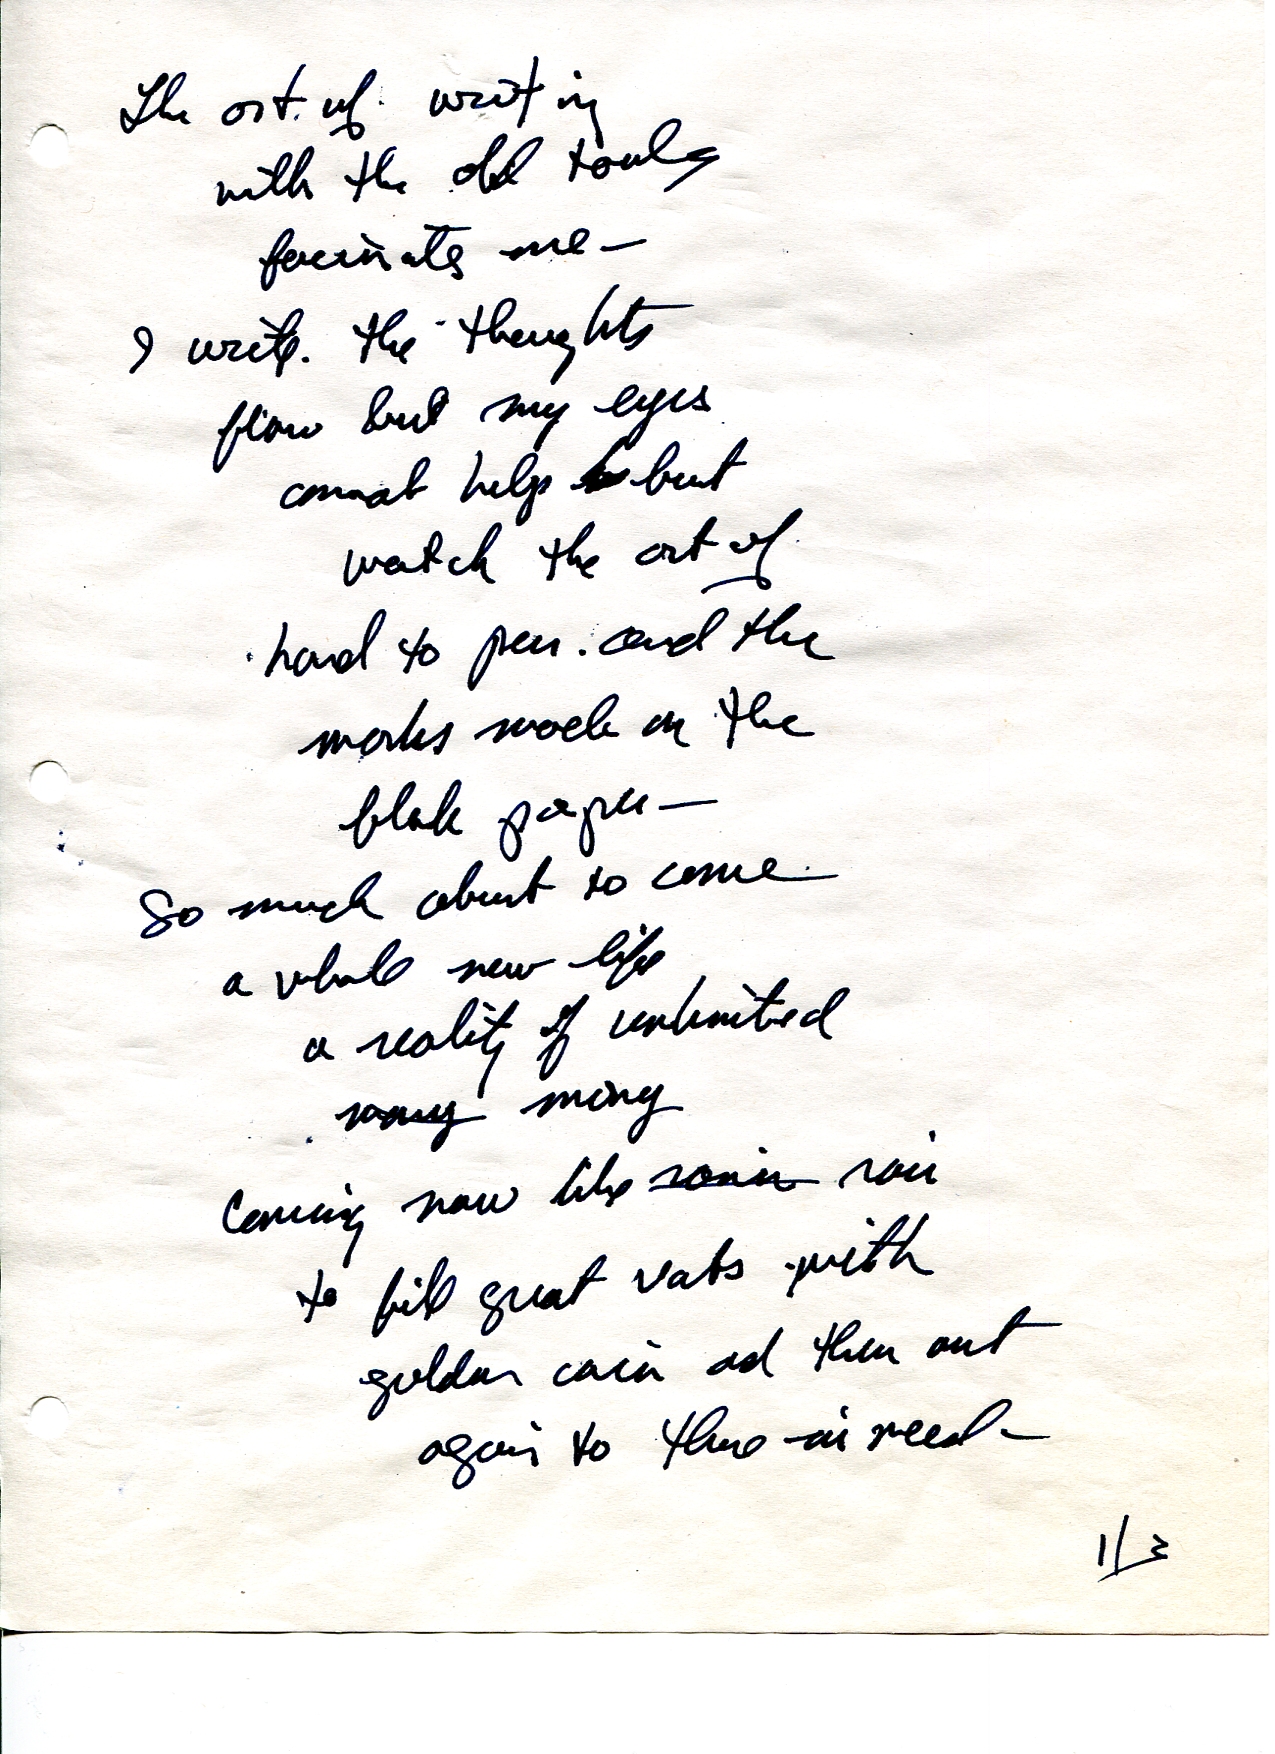 The art of writing
with the old tools
facinates me —
I write. the thoughts
flow but my eyes
cannot help but
watch the art of
hand to pen. and the
marks made on the
blak paper —
So much about to come
a whole new life
a reality of unlimited
money
Coming now like rain
to fill great vats with
golden coin ad then out
again to those in need —
1/3